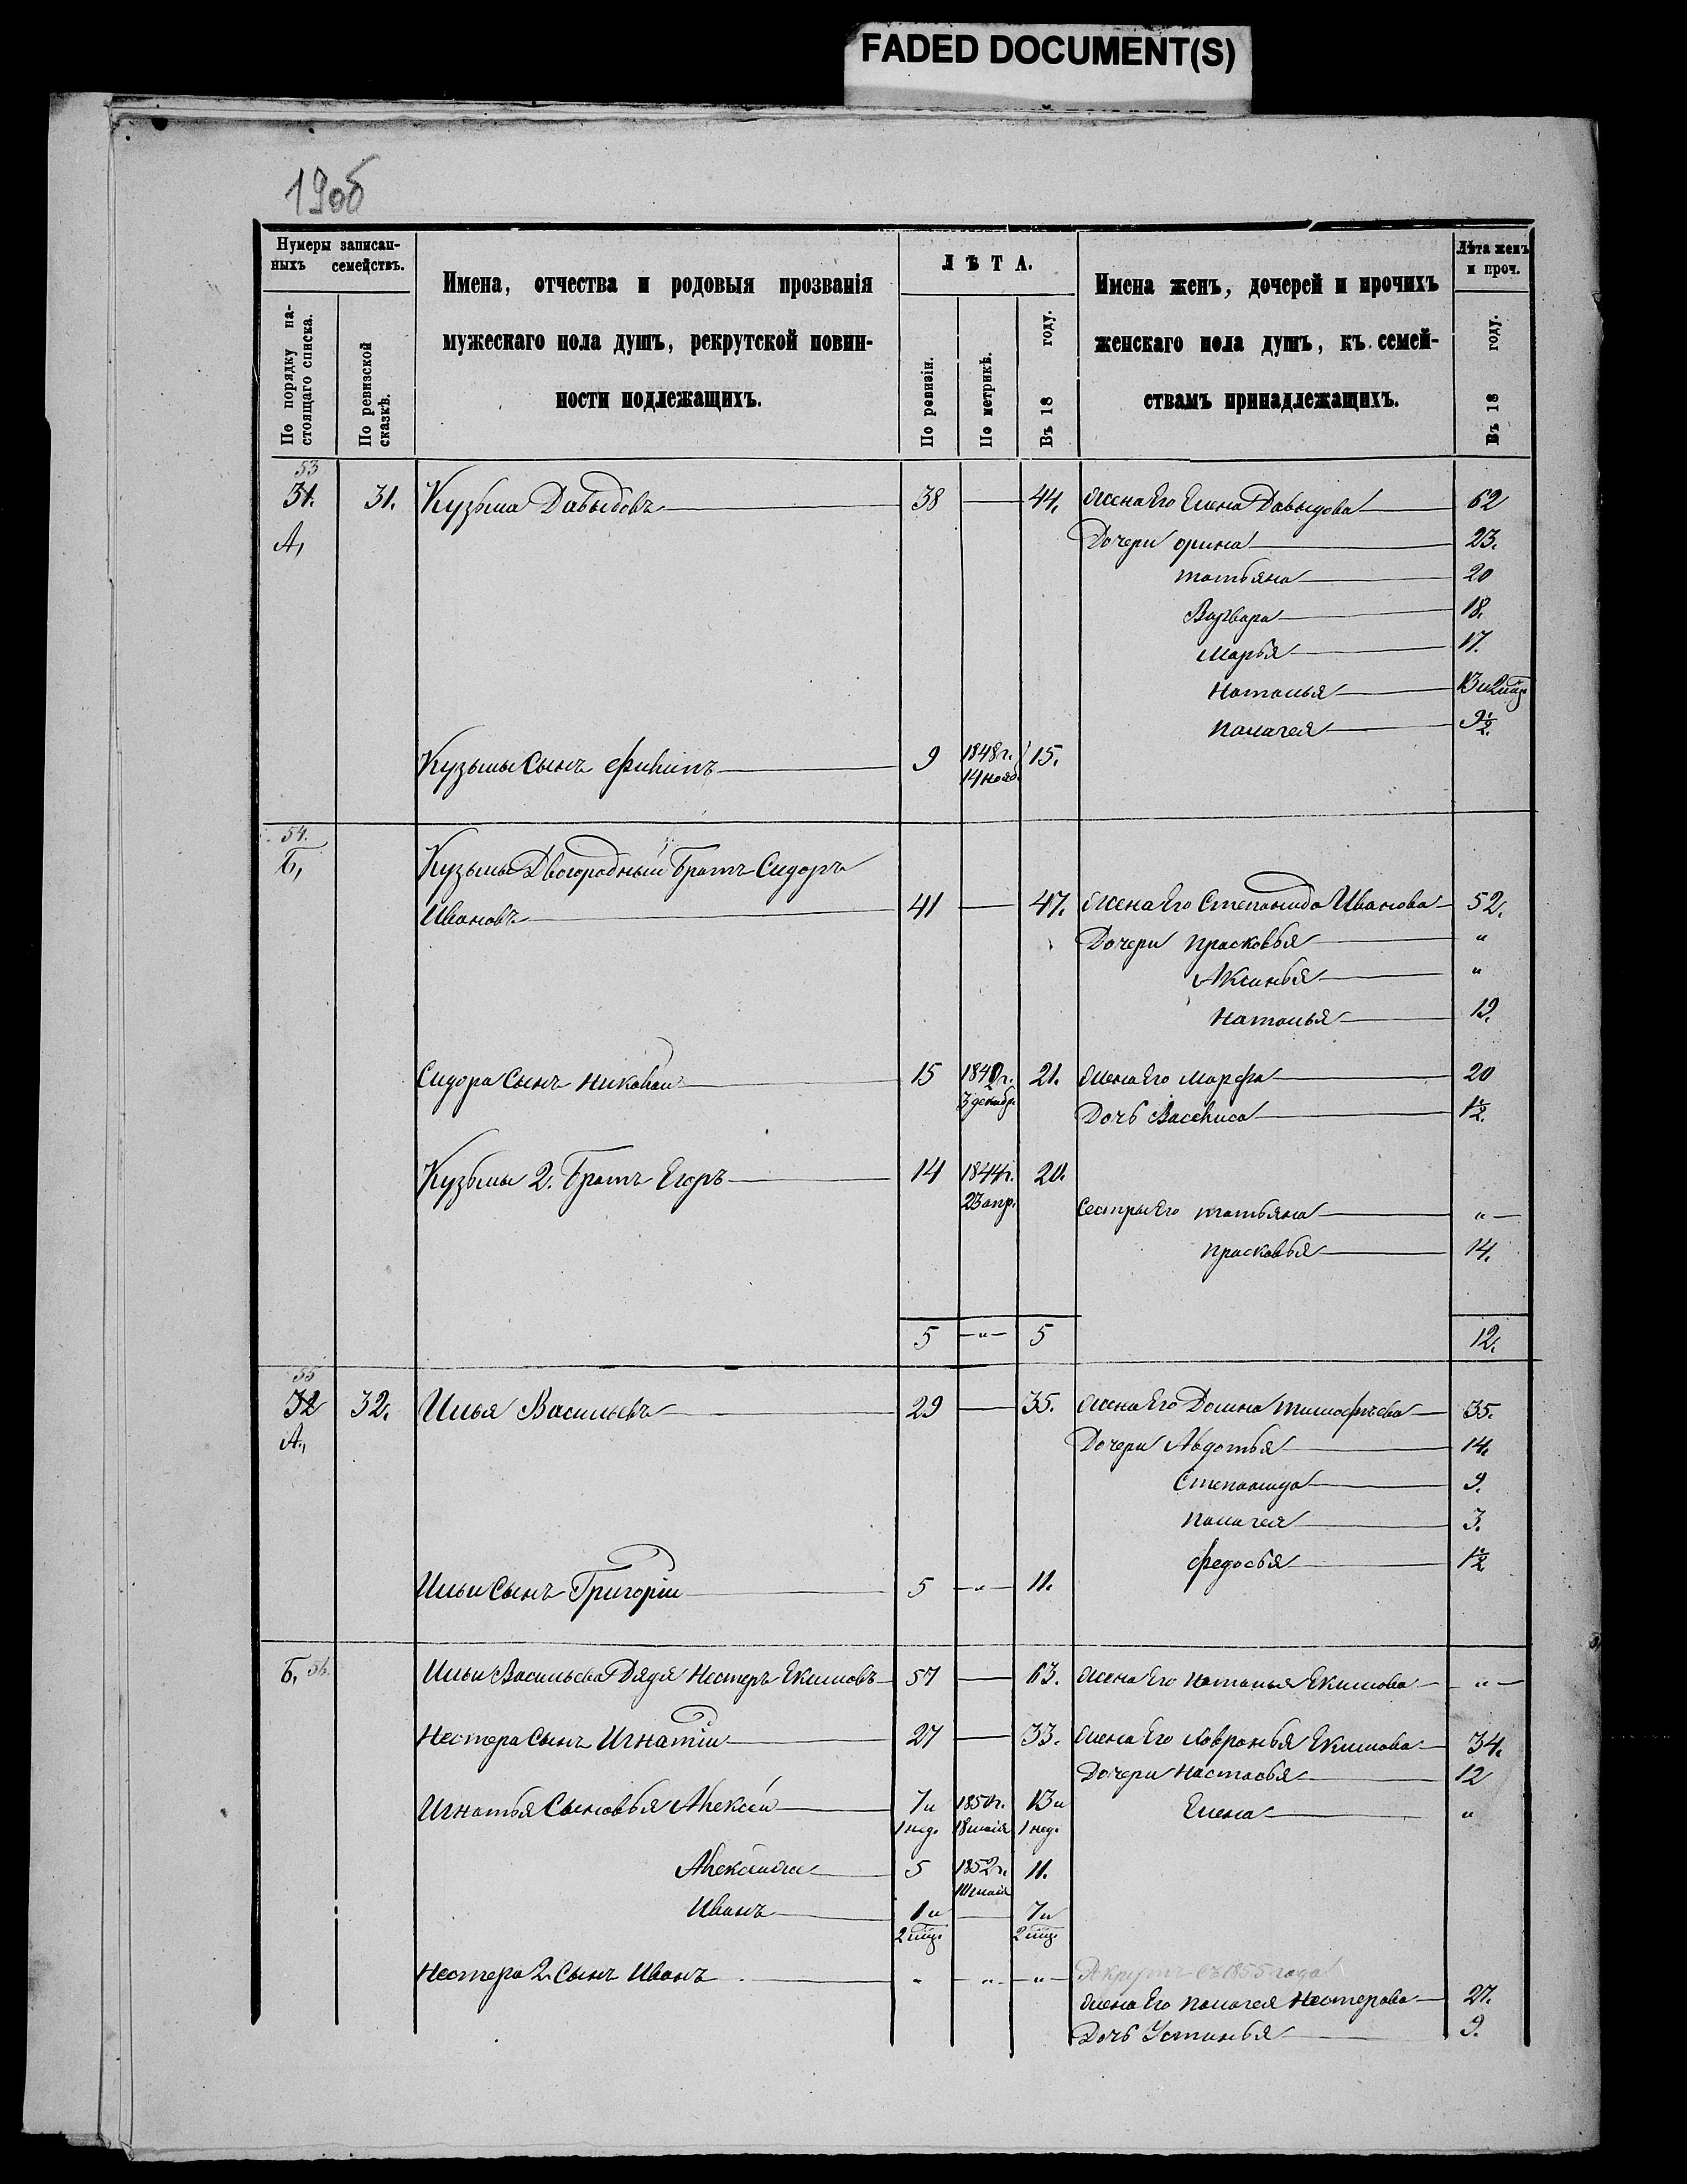 FADED DOCUMENT(S)
19об
Нумеры записан-
ныхъ семействъ.
По порядку на-
стоящаго списка.
По ревизской
сказкѣ.
Имена, отчества и родовыя прозванія
мужескаго пола душъ, рекрутской повин-
ности подлежащихъ.
ЛѢТА.
По ревизіи.
По метрикѣ.
Въ 18 году.
Имена женъ, дочерей и прочихъ
женскаго пола душъ, къ семей-
ствамъ принадлежащихъ.
Лѣта женъ
и проч.
Въ 18 году.
53
31. 31. Кузьма Давыдовъ 38 — 44. жена Его Елена Давыдова 62
А, Дочери орина 23.
татьяна 20
Варвара 18.
Марья 17.
Наталья 13 и 2 мѣс.
палагея 9½.
Кузьмы Сынъ филипъ 9 1848 г. 15.
14 нояб.
54.
Б, Кузьмы Двоюродный Братъ Сидоръ
Ивановъ 41 — 47. жена Его Степанида Иванова 52.
Дочери прасковья "
Аксинья "
Наталья 19.
Сидора Сынъ николай 15 1842 г. 21. жена Его марфа 20
3 декабр. Дочь Васелиса 1½.
Кузьмы 2. Братъ Егоръ 14 1844 г. 20.
23 апр. Сестры Его татьяна "
прасковья 14.
5 " 5 12.
55
32 32. Илья Васильевъ 29 — 35. жена Его Домна тимофѣева 35.
А., Дочери Авдотья 14.
Степанида 9.
палагея 3.
федосья 1½
Ильи Сынъ Григорій 5 " 11.
Б, 56. Ильи Васильева Дядя Нестеръ Екимовъ 57 — 63. жена Его наталья Екимова "
Нестера Сынъ Игнатій 27 — 33. жена Его Ховронья Екимова 34.
Дочери настасья 12
Игнатья Сыновья Алексѣй 7 и 1850 г. 13 и Елена "
1 нед. 18 маія 1 нед.
Александръ 5 1852 г. 11.
10 маія
Иванъ 1 и — 7 и
2 мѣс. 2 мѣс.
Нестера 2. Сынъ Иванъ " " " Рекрутъ съ 1855 года
жена Его палагея Нестерова 27.
Дочь Устинья 9.